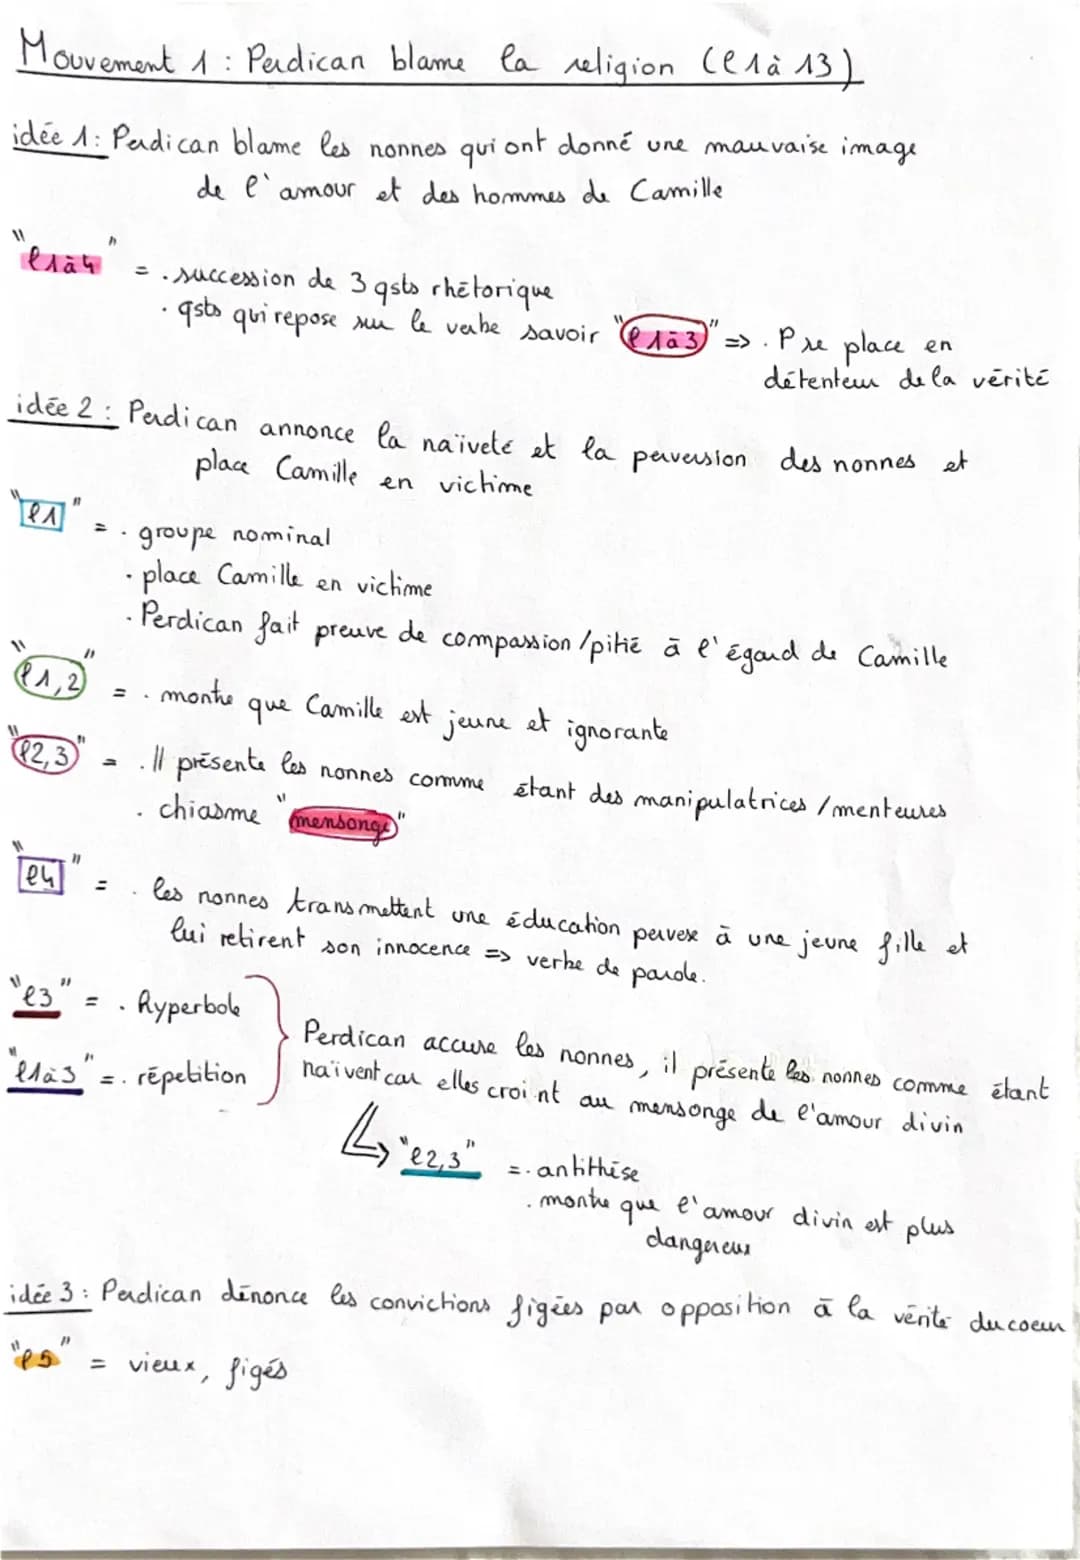 Mouvement 1 : Perdican blame la religion (l1à 13)
idée 1: Perdican blame les nonnes qui ont donné une mauvaise image
de l'amour et des hommes de Camille
"l1à4" = . succession de 3 qsts rhétorique
. qsts qui repose sur le verbe savoir "l1à3" => . P se place en
détenteur de la vérité
idée 2 : Perdican annonce la naïveté et la perversion des nonnes et
place Camille en victime
"l1" = . groupe nominal
. place Camille en victime
. Perdican fait preuve de compassion/pitié à l'égard de Camille
"l1,2" = . montre que Camille est jeune et ignorante
"l2,3" = . Il présente les nonnes comme étant des manipulatrices/menteures
. chiasme "mensonge"
"l4" = . les nonnes transmettent une éducation perverse à une jeune fille et
lui retirent son innocence => verbe de parole.
"l3" = . hyperbole
"l1à3" = . répetition
Perdican accuse les nonnes, il présente les nonnes comme étant
naïvent car elles croient au mensonge de l'amour divin
"l2,3" = . antithèse
. montre que l'amour divin est plus
dangereux
idée 3 : Perdican dénonce les convictions figées par opposition à la vérité du coeur
"l5" = vieux, figés